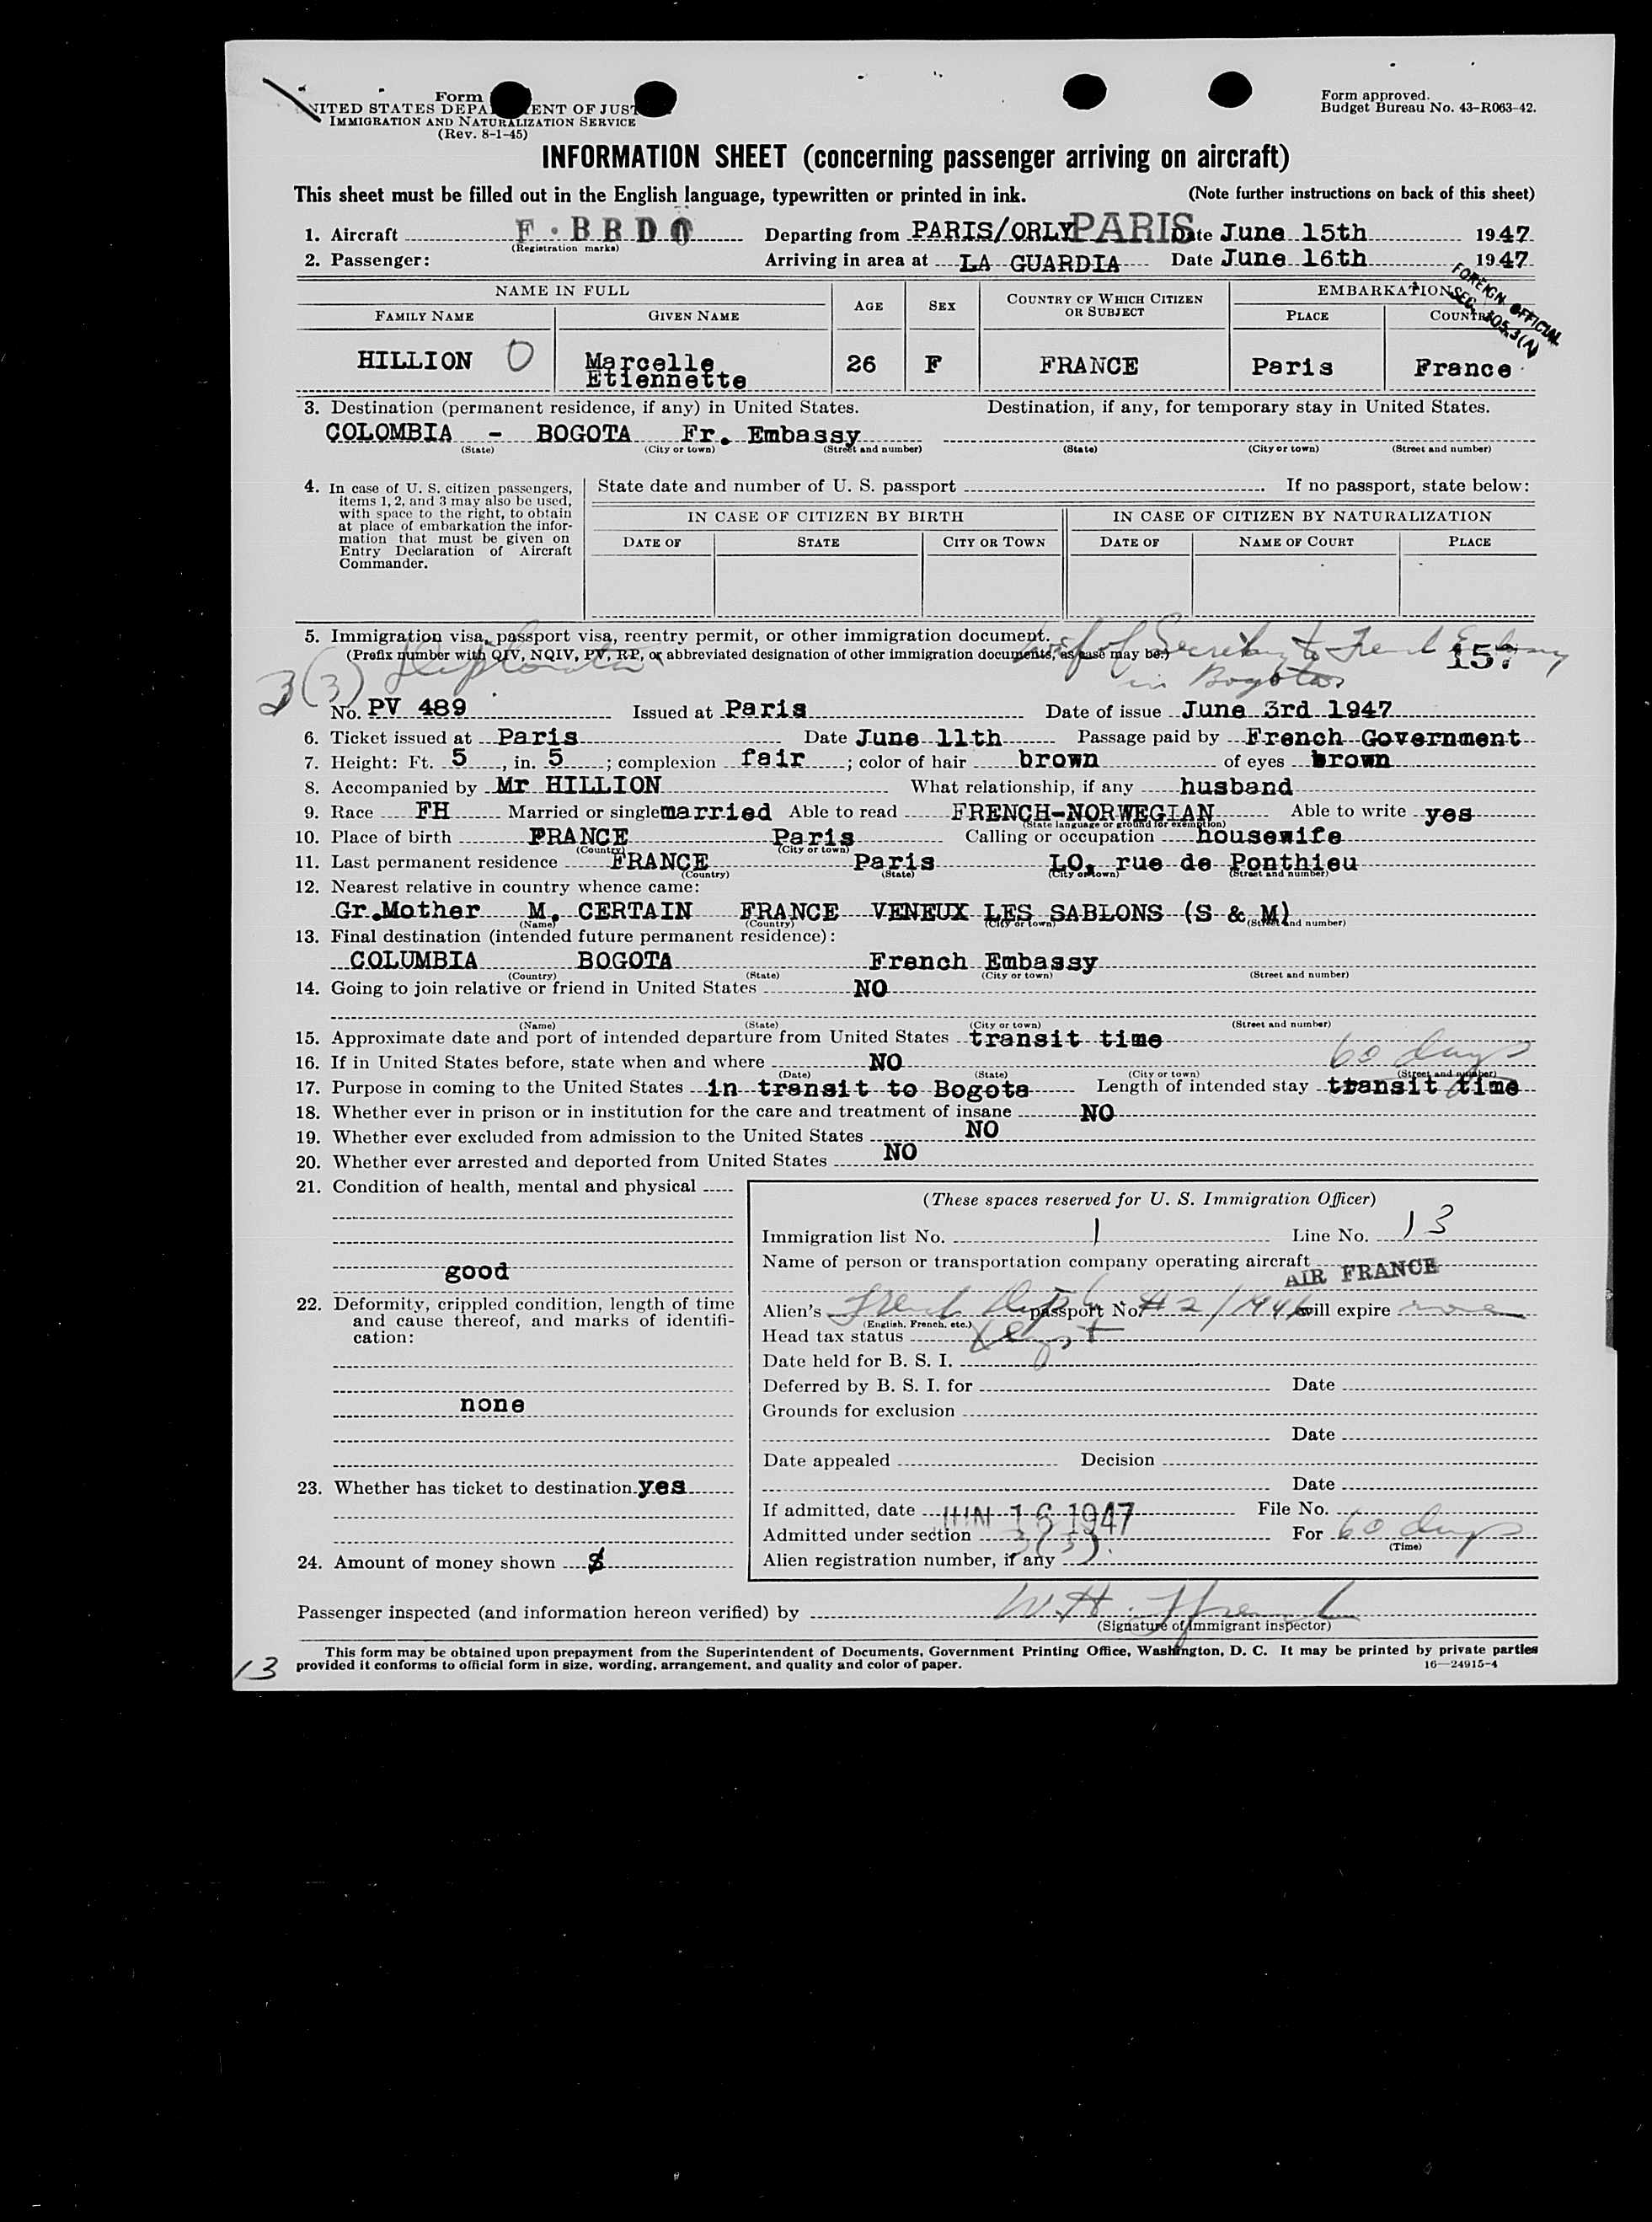 Form
UNITED STATES DEPA ENT OF JUST
IMMIGRATION AND NATURALIZATION SERVICE
(Rev. 8-1-45)
Form approved.
Budget Bureau No. 43-R063-42.
INFORMATION SHEET (concerning passenger arriving on aircraft)
This sheet must be filled out in the English language, typewritten or printed in ink. (Note further instructions on back of this sheet)
1. Aircraft F·BBDO Departing from PARIS/ORLY PARIS Date June 15th 1947
(Registration marks)
2. Passenger: Arriving in area at LA GUARDIA Date June 16th 1947
FOREIGN OFFICIAL
SEC. 105.3(A)
NAME IN FULL AGE SEX COUNTRY OF WHICH CITIZEN OR SUBJECT EMBARKATION
FAMILY NAME GIVEN NAME PLACE COUNTRY
HILLION O Marcelle Etiennette 26 F FRANCE Paris France
3. Destination (permanent residence, if any) in United States. Destination, if any, for temporary stay in United States.
COLOMBIA - BOGOTA Fr. Embassy
(State) (City or town) (Street and number) (State) (City or town) (Street and number)
4. In case of U. S. citizen passengers, items 1, 2, and 3 may also be used, with space to the right, to obtain at place of embarkation the information that must be given on Entry Declaration of Aircraft Commander.
State date and number of U. S. passport If no passport, state below:
IN CASE OF CITIZEN BY BIRTH IN CASE OF CITIZEN BY NATURALIZATION
DATE OF STATE CITY OR TOWN DATE OF NAME OF COURT PLACE
5. Immigration visa, passport visa, reentry permit, or other immigration document.
(Prefix number with QIV, NQIV, PV, RP, or abbreviated designation of other immigration documents, as case may be.)
wife of Secretary to French Embassy
in Bogota
157
3(3)
No. PV 489 Issued at Paris Date of issue June 3rd 1947
6. Ticket issued at Paris Date June 11th Passage paid by French Government
7. Height: Ft. 5, in. 5; complexion fair; color of hair brown of eyes brown
8. Accompanied by Mr HILLION What relationship, if any husband
9. Race FH Married or single married Able to read FRENCH-NORWEGIAN Able to write yes
(State language or ground for exemption)
10. Place of birth FRANCE Paris Calling or occupation housewife
(Country) (City or town)
11. Last permanent residence FRANCE Paris LO, rue de Ponthieu
(Country) (State) (City or town) (Street and number)
12. Nearest relative in country whence came:
Gr.Mother M. CERTAIN FRANCE VENEUX LES SABLONS (S & M)
(Name) (Country) (City or town) (Street and number)
13. Final destination (intended future permanent residence):
COLUMBIA BOGOTA French Embassy
(Country) (State) (City or town) (Street and number)
14. Going to join relative or friend in United States NO
(Name) (State) (City or town) (Street and number)
15. Approximate date and port of intended departure from United States transit time
16. If in United States before, state when and where NO 60 days
(Date) (State) (City or town) (Street and number)
17. Purpose in coming to the United States in transit to Bogota Length of intended stay transit time
18. Whether ever in prison or in institution for the care and treatment of insane NO
19. Whether ever excluded from admission to the United States NO
20. Whether ever arrested and deported from United States NO
21. Condition of health, mental and physical
good
22. Deformity, crippled condition, length of time and cause thereof, and marks of identification:
none
23. Whether has ticket to destination yes
24. Amount of money shown $
(These spaces reserved for U. S. Immigration Officer)
Immigration list No. 1 Line No. 13
Name of person or transportation company operating aircraft
AIR FRANCE
Alien's French passport No. will expire
(English, French, etc.)
Head tax status
Date held for B. S. I.
Deferred by B. S. I. for Date
Grounds for exclusion
Date
Date appealed Decision
Date
If admitted, date JUN 16 1947 File No.
Admitted under section 3(3). For 60 days
(Time)
Alien registration number, if any
Passenger inspected (and information hereon verified) by
(Signature of immigrant inspector)
This form may be obtained upon prepayment from the Superintendent of Documents, Government Printing Office, Washington, D. C. It may be printed by private parties
provided it conforms to official form in size, wording, arrangement, and quality and color of paper. 16—24915-4
13